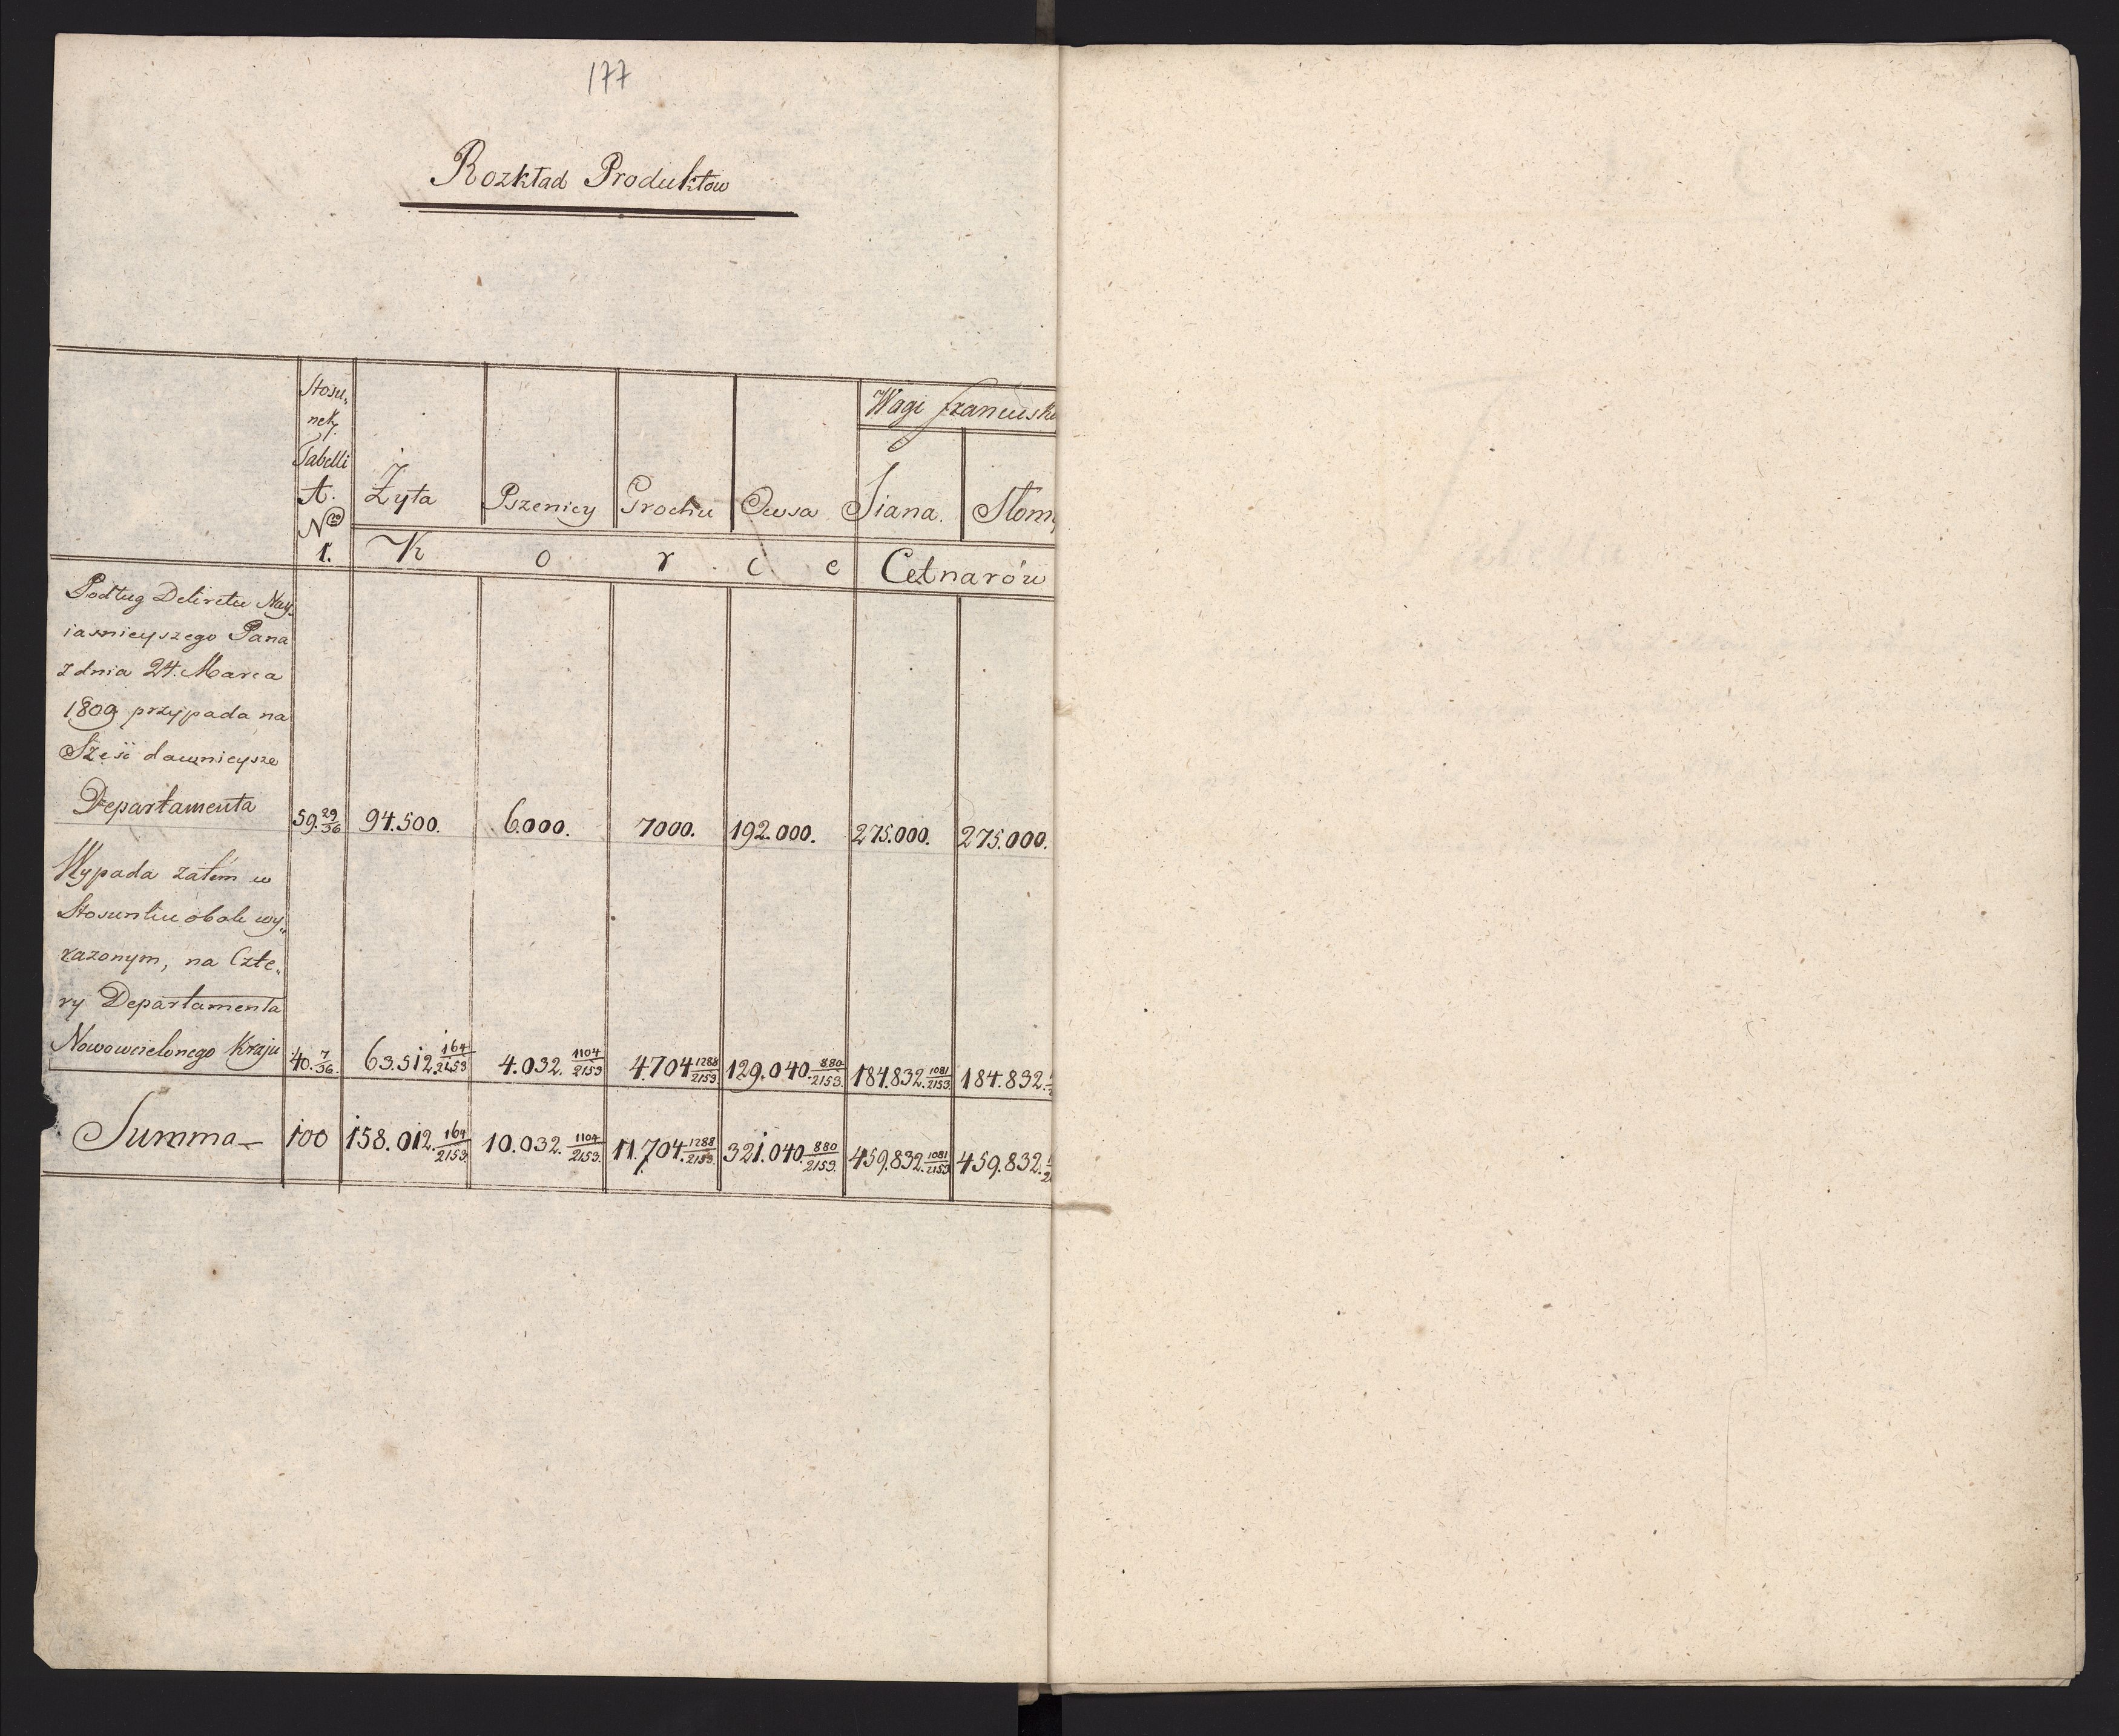 177
Rozkład Produktow
Stosu„
nek.
Tabelli
A.
N<sup>ro</sup>
1.
Żyta Pszenicy Grochu Owsa
Wagi francuski
Siana. Słom
K o r c e Cetnarów
Podług Dekretu Nay„
iasnieyszego Pana
z dnia 24. Marca
1809 przypada na
Sześć dawnieysze
Departamenta 59. 29/36 94.500. 6.000. 7000. 192.000. 275.000. 275.000.
Wypada zatém w
Stosunku obok wy„
rażonym, na Czte„
ry Departamenta
Nowowcielonego Kraju 40. 7/36. 63.512. 164/2153 4.032. 1104/2153 4.704 1288/2153 129.040. 880/2153. 184.832. 1081/2153 184.832.
Summa 100 158.012. 164/2153. 10.032. 1104/2153. 11.704. 1288/2153. 321.040 880/2153. 459.832. 1081/2153 459.832.